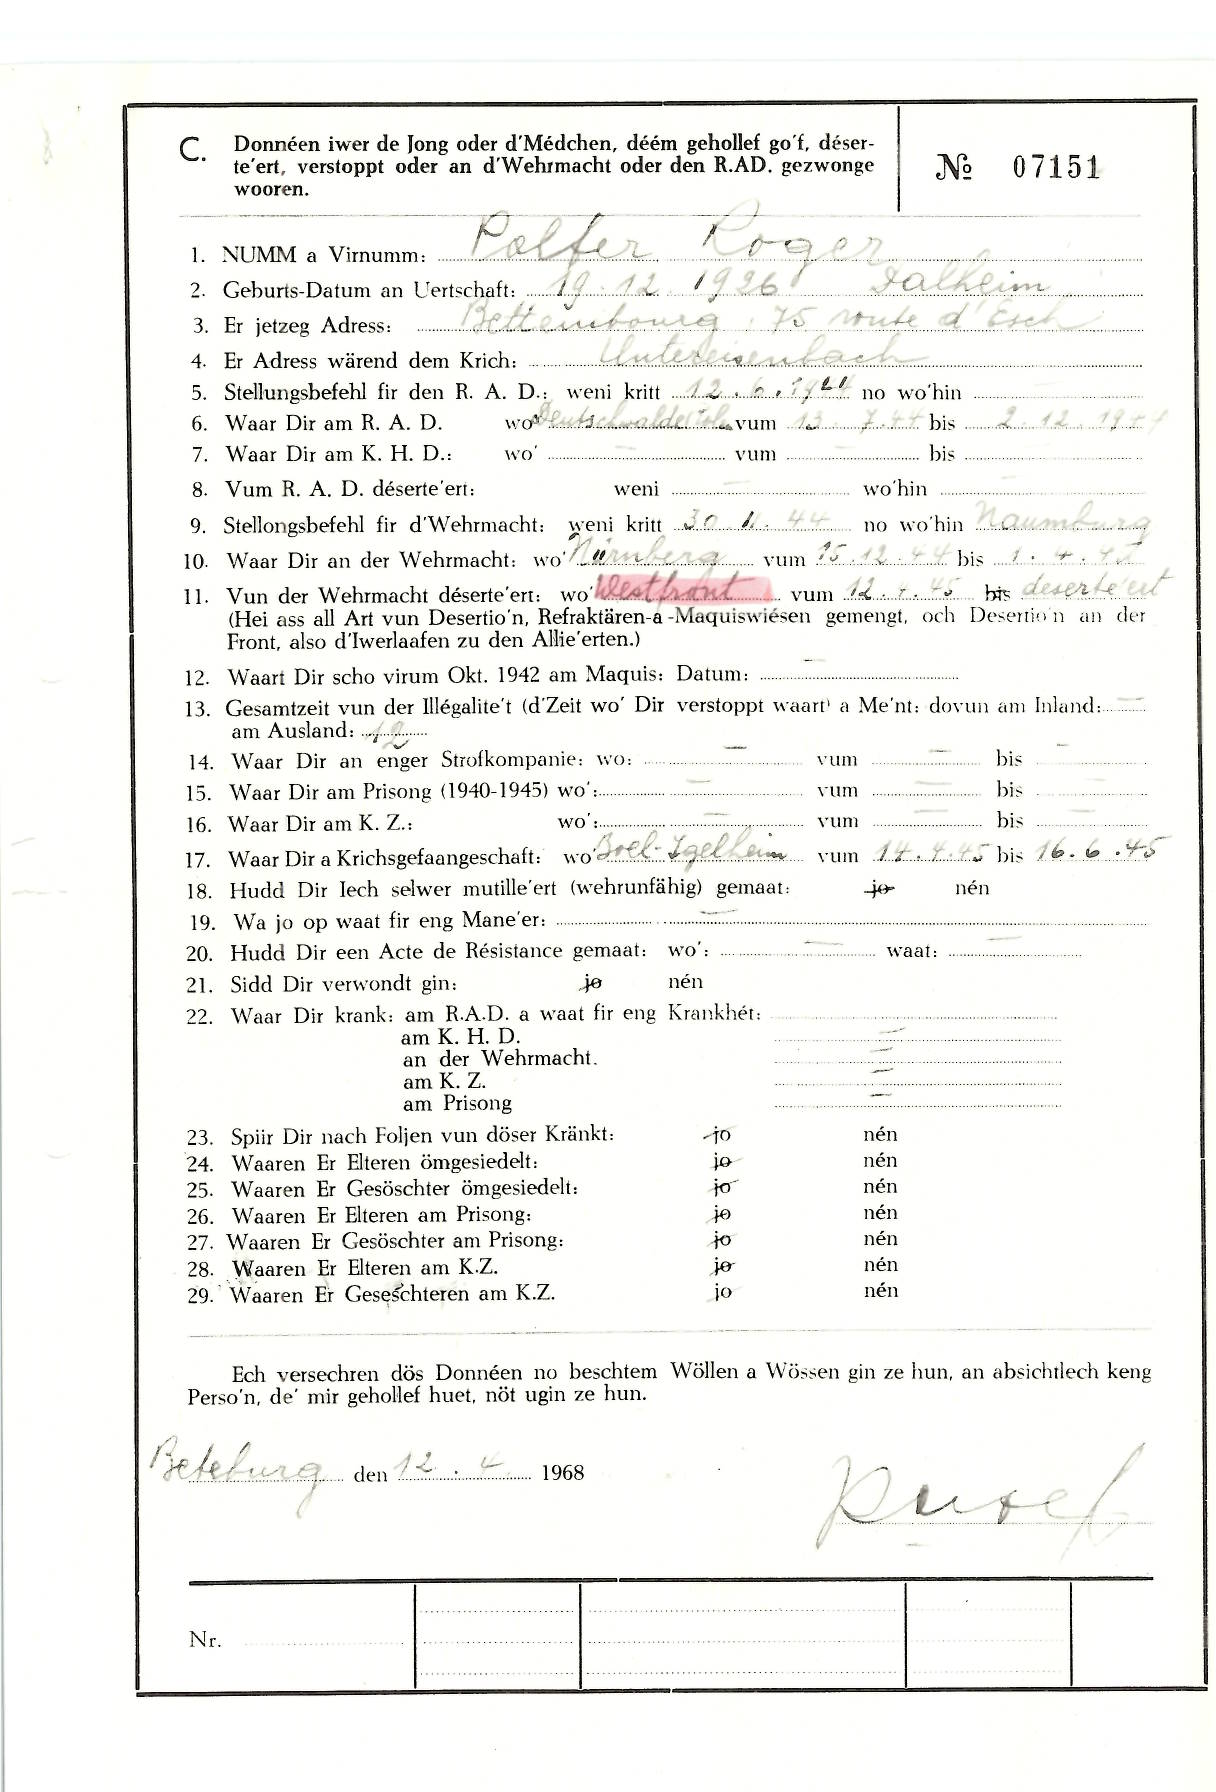 C. Donnéen iwer de Jong oder d'Médchen, déém gehollef go'f, déser-
te'ert, verstoppt oder an d'Wehrmacht oder den R.AD. gezwonge
wooren.
№ 07151
1. NUMM a Virnumm: Polfer Roger
2. Geburts-Datum an Uertschaft: 19.12.1926 Dalheim
3. Er jetzeg Adress: Bettembourg, 75 route d'Esch
4. Er Adress wärend dem Krich: Untereisenbach
5. Stellungsbefehl fir den R. A. D.: weni kritt 12.6.1944 no wo'hin
6. Waar Dir am R. A. D. wo' vum 13.7.44 bis 2.12.1944
7. Waar Dir am K. H. D.: wo' — vum — bis
8. Vum R. A. D. déserte'ert: weni — wo'hin
9. Stellongsbefehl fir d'Wehrmacht: weni kritt 30 44 no wo'hin Naumburg
10. Waar Dir an der Wehrmacht: wo' Nürnberg vum 15.12.44 bis 1.4.45
11. Vun der Wehrmacht déserte'ert: wo' Westfront vum 12.4.45 bis deserte'ert
(Hei ass all Art vun Desertio'n, Refraktären-a-Maquiswiésen gemengt, och Desertio'n an der
Front, also d'Iwerlaafen zu den Allie'erten.)
12. Waart Dir scho virum Okt. 1942 am Maquis: Datum: —
13. Gesamtzeit vun der Illégalite't (d'Zeit wo' Dir verstoppt waart' a Me'nt: dovun am Inland: —
am Ausland: 12
14. Waar Dir an enger Strofkompanie: wo: — vum — bis —
15. Waar Dir am Prisong (1940-1945) wo': — vum — bis —
16. Waar Dir am K. Z.: wo': — vum — bis —
17. Waar Dir a Krichsgefaangeschaft: wo' Boel-Igelheim vum 14.4.45 bis 16.6.45
18. Hudd Dir Iech selwer mutille'ert (wehrunfähig) gemaat: jo nén
19. Wa jo op waat fir eng Mane'er: —
20. Hudd Dir een Acte de Résistance gemaat: wo': — waat: —
21. Sidd Dir verwondt gin: jo nén
22. Waar Dir krank: am R.A.D. a waat fir eng Krankhét:
am K. H. D. —
an der Wehrmacht. —
am K. Z. —
am Prisong —
23. Spiir Dir nach Foljen vun döser Kränkt: jo nén
24. Waaren Er Elteren ömgesiedelt: jo nén
25. Waaren Er Gesöschter ömgesiedelt: jo nén
26. Waaren Er Elteren am Prisong: jo nén
27. Waaren Er Gesöschter am Prisong: jo nén
28. Waaren Er Elteren am K.Z. jo nén
29. Waaren Er Geseschteren am K.Z. jo nén
Ech versechren dös Donnéen no beschtem Wöllen a Wössen gin ze hun, an absichtlech keng
Perso'n, de' mir gehollef huet, nöt ugin ze hun.
Beteburg den 12.4 1968
Nr.